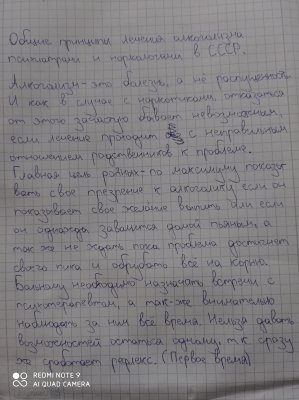 Общие принципы лечения алкоголизма
психиатрами и наркологами в СССР.
Алкоголизм-это болезнь, а не распущенность.
И как в случае с наркотиками отказаться
от этого зачастую бывает невозможным,
если лечение проходит с неправильным
отношением родственников к проблеме.
Главная цель родных-по максимуму показы-
вать свое презрение к алкоголику если он
показывает свое желание выпить или если
он однажды завалится домой пьяным, а
так же не ждать пока проблема достигнет
своего пика и обрубать всё на корню.
Больному необходимо назначать встречи с
психотерапевтом, а так-же внимательно
наблюдать за ним всё время. Нельзя давать
возможностей остаться одному, т.к сразу
же сработает рефлекс. (Первое время)
REDMI NOTE 9
AI QUAD CAMERA